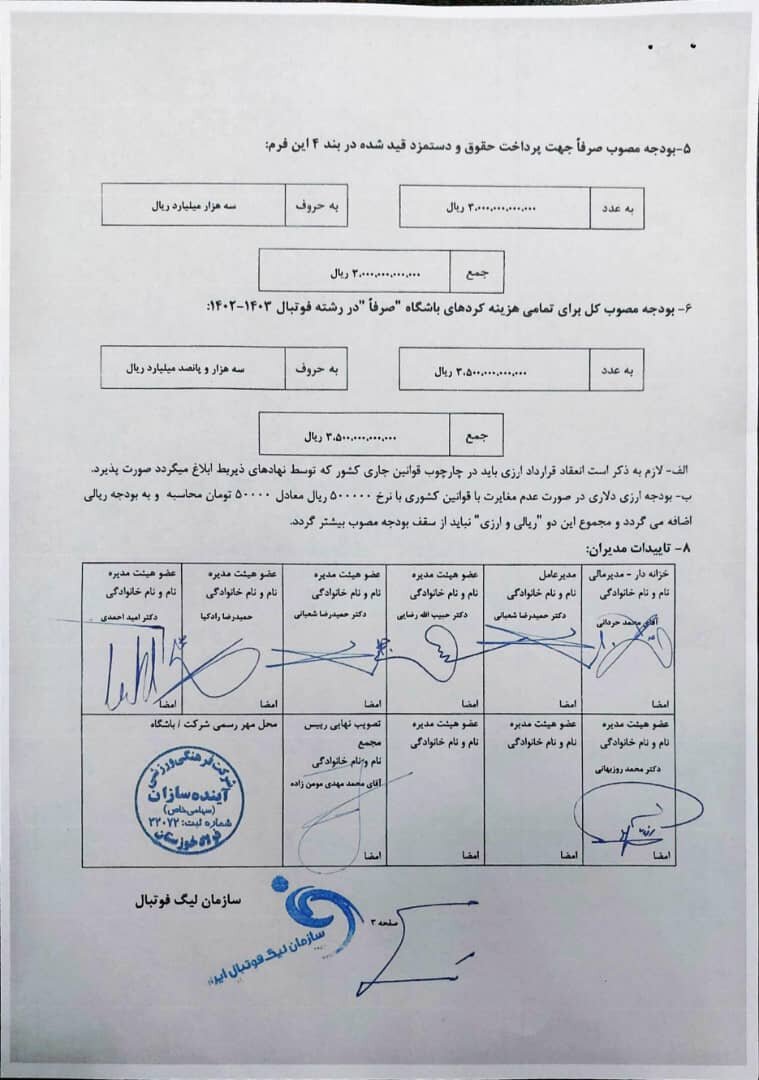 ۵-بودجه مصوب صرفاً جهت پرداخت حقوق و دستمزد قید شده در بند ۴ این فرم:
به عدد
۳،۰۰۰،۰۰۰،۰۰۰،۰۰۰ ریال
به حروف
سه هزار میلیارد ریال
جمع
۳،۰۰۰،۰۰۰،۰۰۰،۰۰۰ ریال
۶- بودجه مصوب کل برای تمامی هزینه کردهای باشگاه "صرفاً "در رشته فوتبال ۱۴۰۳-۱۴۰۲:
به عدد
۳،۵۰۰،۰۰۰،۰۰۰،۰۰۰ ریال
به حروف
سه هزار و پانصد میلیارد ریال
جمع
۳،۵۰۰،۰۰۰،۰۰۰،۰۰۰ ریال
الف- لازم به ذکر است انعقاد قرارداد ارزی باید در چارچوب قوانین جاری کشور که توسط نهادهای ذیربط ابلاغ میگردد صورت پذیرد.
ب- بودجه ارزی دلاری در صورت عدم مغایرت با قوانین کشوری با نرخ ۵۰۰۰۰۰ ریال معادل ۵۰۰۰۰ تومان محاسبه و به بودجه ریالی
اضافه می گردد و مجموع این دو "ریالی و ارزی" نباید از سقف بودجه مصوب بیشتر گردد.
۸- تاییدات مدیران:
خزانه دار - مدیرمالی
نام و نام خانوادگی
آقای محمد حردانی
امضا
مدیرعامل
نام و نام خانوادگی
دکتر حمیدرضا شعبانی
امضا
عضو هیئت مدیره
نام و نام خانوادگی
دکتر حبیب الله رضایی
امضا
عضو هیئت مدیره
نام و نام خانوادگی
دکتر حمیدرضا شعبانی
امضا
عضو هیئت مدیره
نام و نام خانوادگی
حمیدرضا رادکیا
امضا
عضو هیئت مدیره
نام و نام خانوادگی
دکتر امید احمدی
امضا
عضو هیئت مدیره
نام و نام خانوادگی
دکتر محمد روزبهانی
امضا
عضو هیئت مدیره
نام و نام خانوادگی
امضا
عضو هیئت مدیره
نام و نام خانوادگی
امضا
تصویب نهایی رییس
مجمع
نام و نام خانوادگی
آقای محمد مهدی مومن زاده
امضا
محل مهر رسمی شرکت / باشگاه
شرکت فرهنگی ورزشی
آینده سازان
(سهامی خاص)
شماره ثبت: ۳۲۰۷۲
فولاد خوزستان
سازمان لیگ فوتبال
صفحه ۳
سازمان لیگ فوتبال ایران